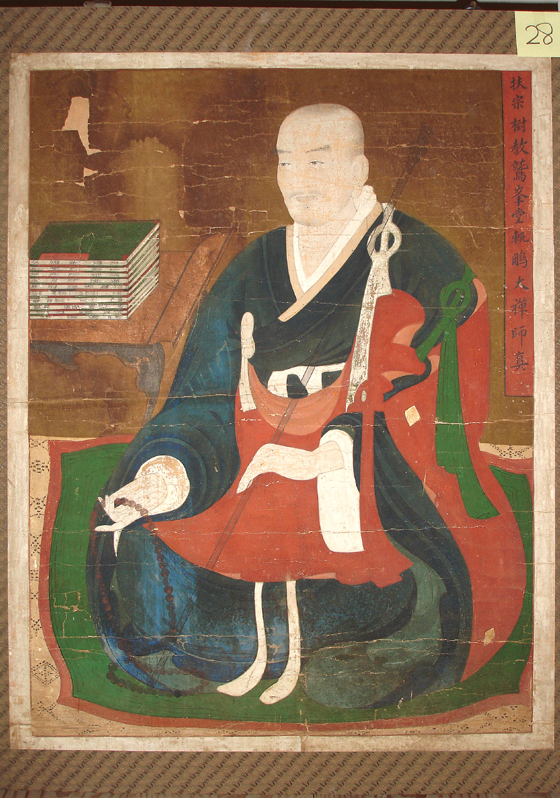 28
扶宗樹教鷲峯堂執鵬大禪師真